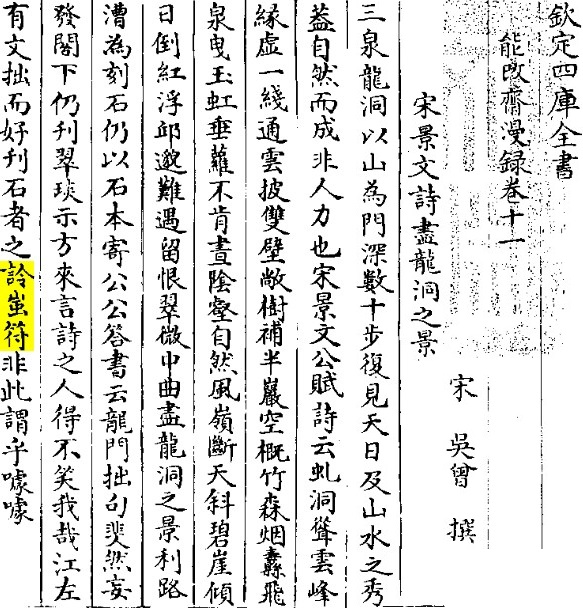 欽定四庫全書
能改齋漫録卷十一
宋 吳曾 撰
宋景文詩盡龍洞之景
三泉龍洞以山為門深數十步復見天日及山水之秀
葢自然而成非人力也宋景文公賦詩云虬洞聳雲峰
緣虛一綫通雲披雙壁敞樹補半巖空概竹森烟纛飛
泉曵玉虹垂蘿不肯晝陰壑自然風嶺斷天斜碧崖傾
日倒紅浮邱邈難遇留恨翠微中曲盡龍洞之景利路
漕為刻石仍以石本寄公公答書云龍門拙句斐然妄
發閣下仍刋翠琰示方來言詩之人得不笑我哉江左
有文拙而好刋石者之詅蚩符非此謂乎噱噱